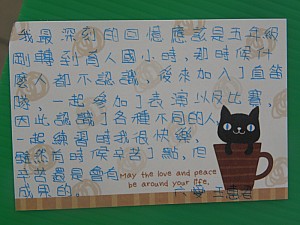 我最深刻的回憶應該是五年級
剛轉到育人國小時,那時候什
麼人都不認識,後來加入了直笛
隊,一起參加了表演以及比賽,
因此認識了各種不同的人,
一起練習時我很快樂,
雖然有時候辛苦了點,但
辛苦還是會有
成果的。
May the love and peace
be around your life.